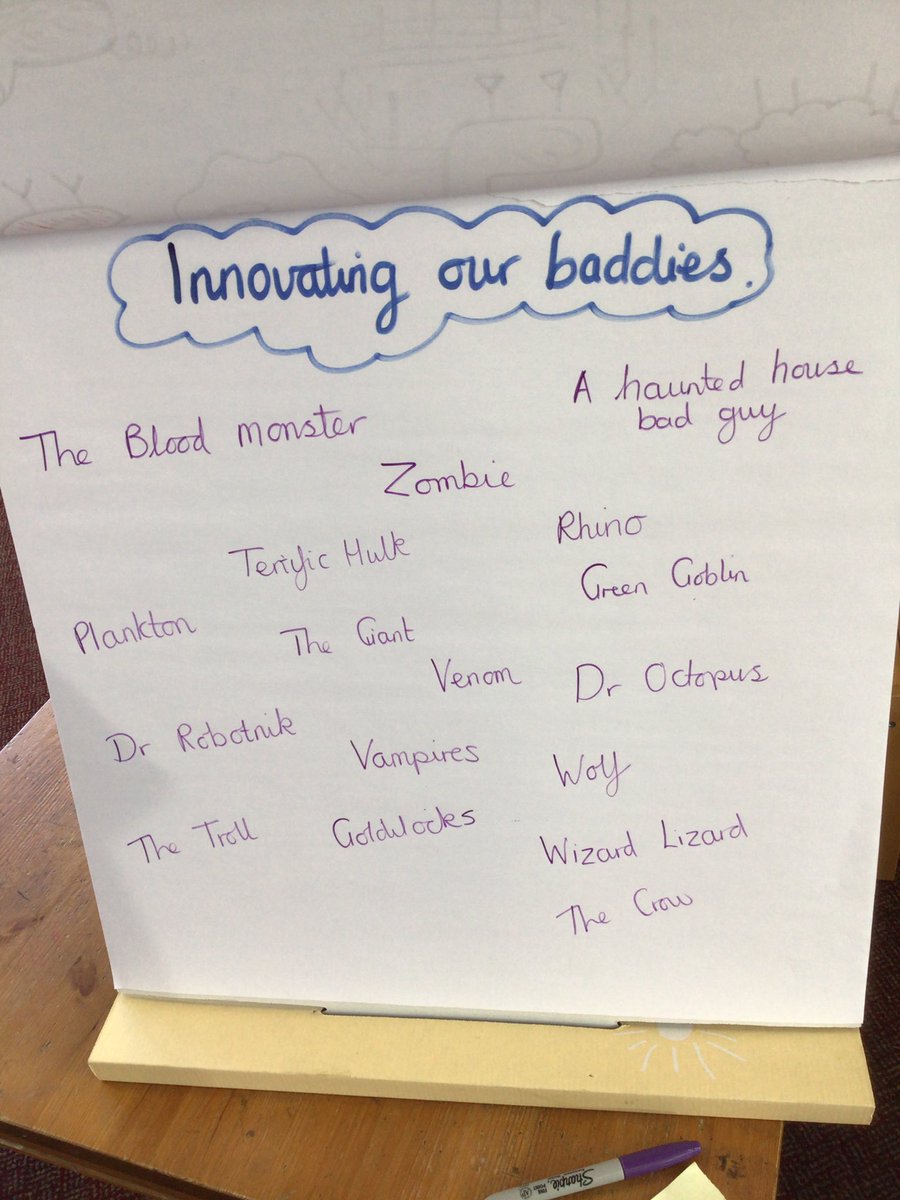 Innovating our baddies.
A haunted house
bad guy
The Blood monster
Zombie
Rhino
Terrific Hulk
Green Goblin
Plankton
The Giant
Venom
Dr Octopus
Dr Robotnik
Vampires
Wolf
The Troll
Goldilocks
Wizard Lizard
The Crow
Sharpie
FINE POINT